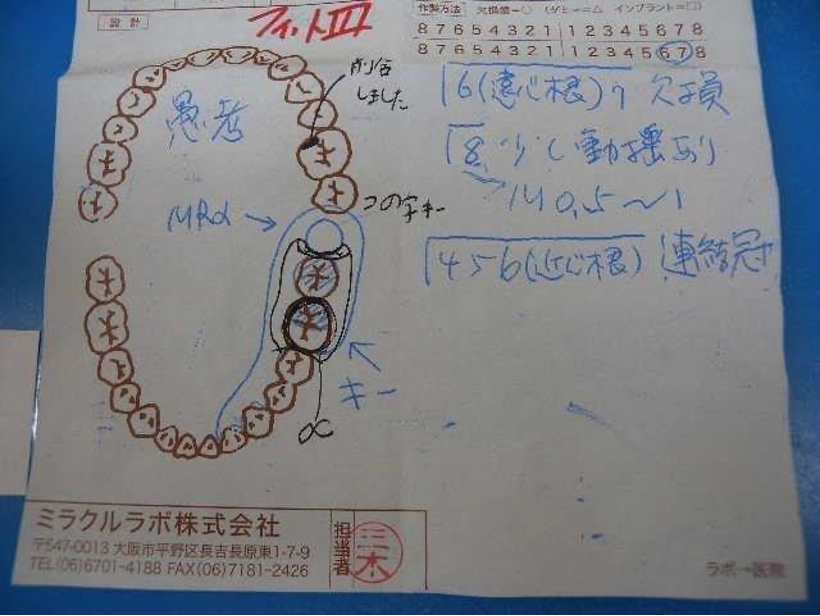 設計
フィットⅢ
製作方法 欠損歯=○ (ダミー=△ インプラント=□)
8 7 6 5 4 3 2 1 | 1 2 3 4 5 6 7 8
8 7 6 5 4 3 2 1 | 1 2 3 4 5 6 7 8
削合
しました
愚考
6(遠心根)7 欠損
8 少し動揺あり
M 0.5〜1
456(近心根) 連結冠
コの字キー
MRα →
キー
α
ミラクルラボ株式会社
〒547-0013 大阪市平野区長吉長原東1-7-9
TEL(06)6701-4188 FAX(06)7181-2426
担当者
三木
ラボ→医院